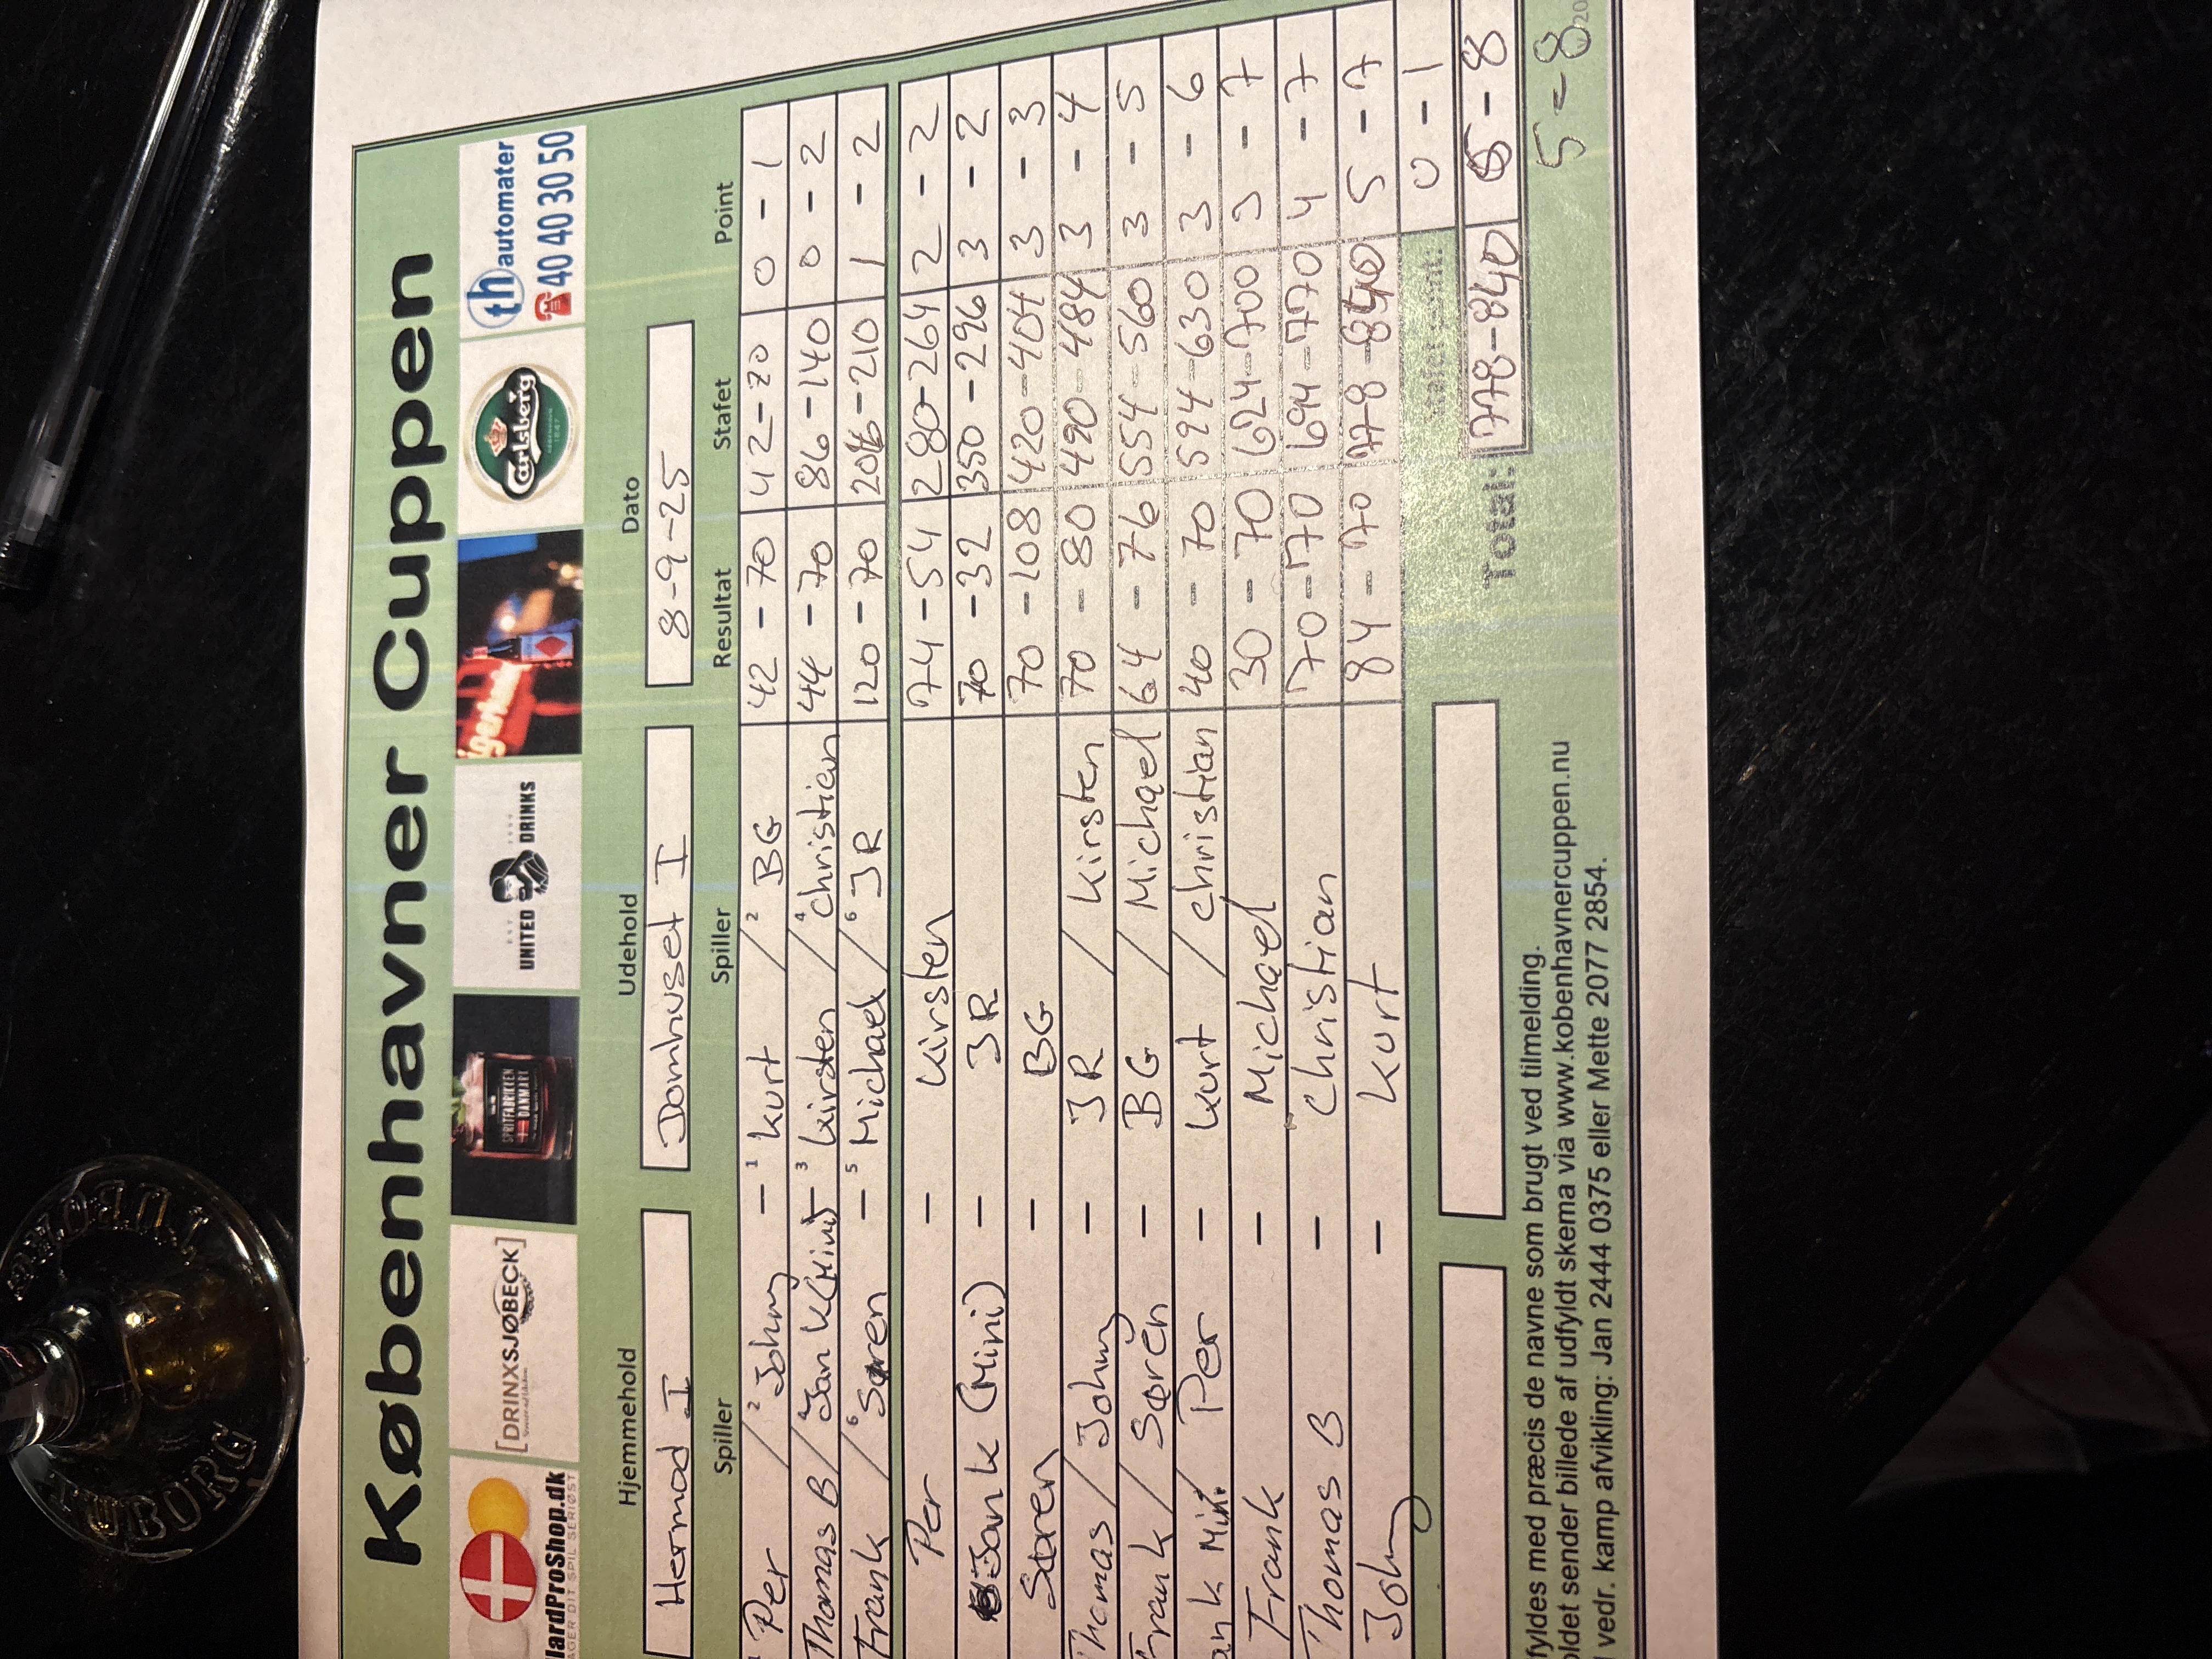 Københavner Cuppen
llardProShop.dk
ÅGER DIT SPIL SERIØST
[DRINXSJØBECK]
SPRITFABRIKKEN
DANMARK
EST 1999
UNITED DRINKS
Carlsberg
th automater
40 40 30 50
Hjemmehold Udehold Dato
Hermod I Domhuset I 8-9-25
Spiller Spiller Resultat Stafet Point
1 Per / 2 Johny - 1 Kurt / 2 BG 42 - 70 42-70 0 - 1
Thomas B / 4 Jan K (Mini) - 3 Kirsten / 4 Christian 44 - 70 86-140 0 - 2
Frank / 6 Søren - 5 Michael / 6 JR 120 - 70 206-210 1 - 2
Per - Kirsten 74 - 54 280-264 2 - 2
Jan K (Mini) - JR 70 - 32 350-296 3 - 2
Søren - BG 70 - 108 420-404 3 - 3
Thomas / Johny - JR / Kirsten 70 - 80 490-484 3 - 4
Frank / Søren - BG / Michael 64 - 76 554-560 3 - 5
an K Mini / Per - Kurt / Christian 40 - 70 594-630 3 - 6
Frank - Michael 30 - 70 624-700 3 - 7
Thomas B - Christian 70 - 70 694-770 4 - 7
Johny - Kurt 84 - 70 778-840 5 - 7
Stafet point: 0 - 1
Total: 778-840 5 - 8
5-8
fyldes med præcis de navne som brugt ved tilmelding.
oldet sender billede af udfyldt skema via www.kobenhavnercuppen.nu
l vedr. kamp afvikling: Jan 2444 0375 eller Mette 2077 2854.
TUBORG